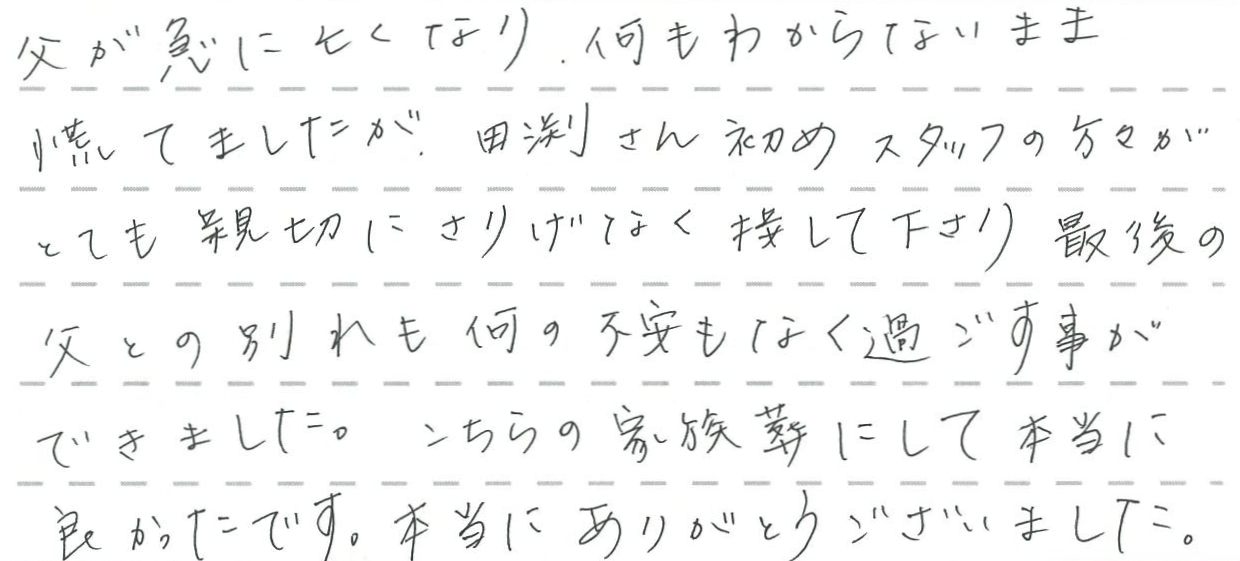 父が急に亡くなり、何もわからないまま
慌てましたが、田渕さん初めスタッフの方々が
とても親切にさりげなく接して下さり最後の
父との別れも何の不安もなく過ごす事が
できました。こちらの家族葬にして本当に
良かったです。本当にありがとうございました。